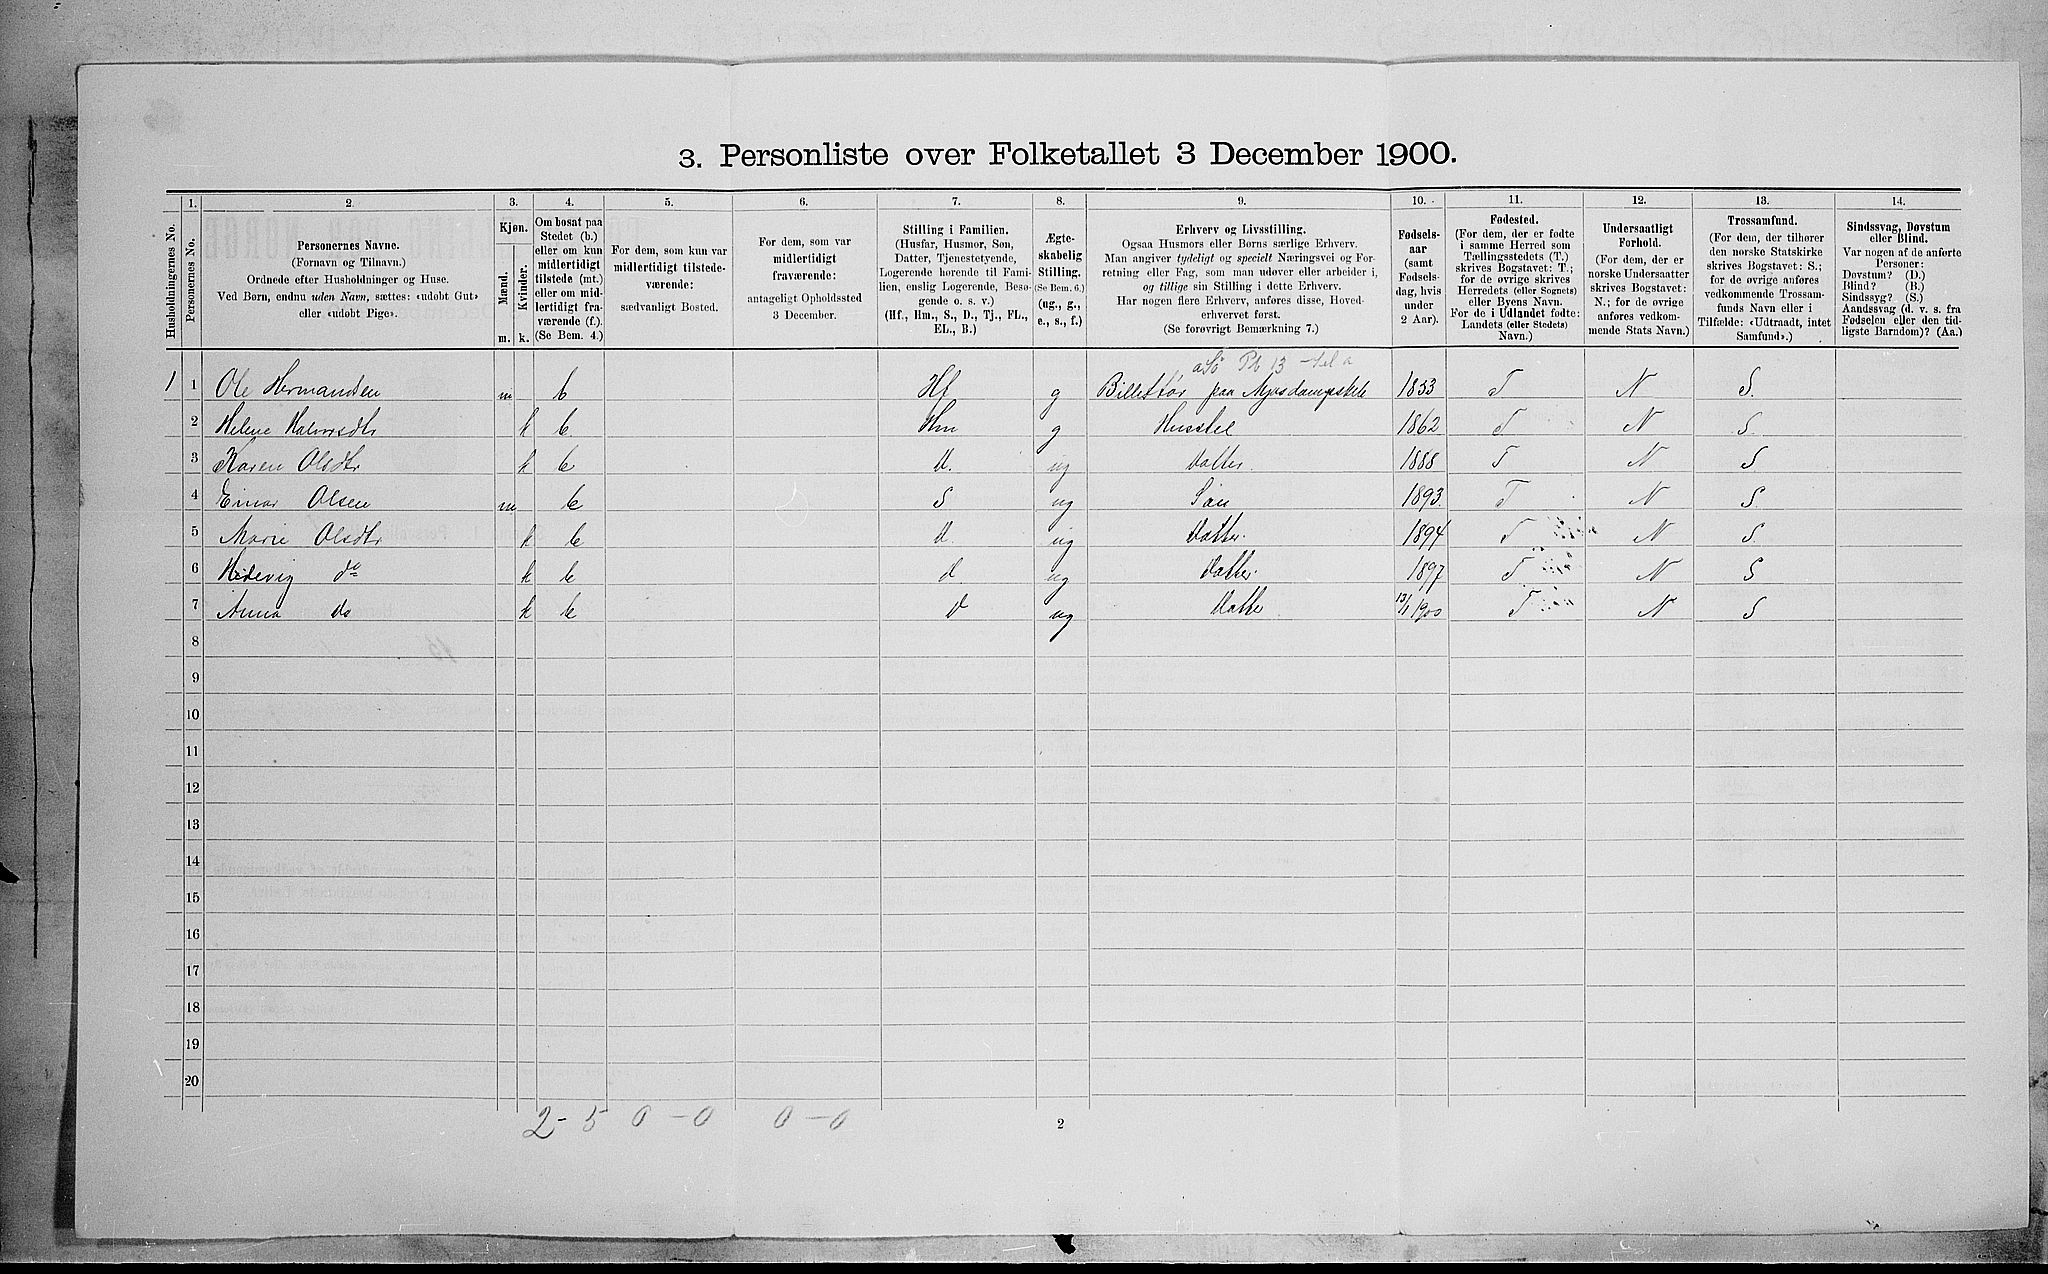 3. Personliste over Folketallet 3 December 1900.
1. 2. 3. 4. 5. 6. 7. 8. 9. 10. 11. 12. 13. 14.
Husholdningernes No.
Personernes No.
Personernes Navne.
(Fornavn og Tilnavn.)
Ordnede efter Husholdninger og Huse.
Ved Børn, endnu uden Navn, sættes: «udøbt Gut»
eller «udøbt Pige».
Kjøn.
Mænd.
Kvinder.
m. k.
Om bosat paa
Stedet (b.)
eller om kun
midlertidigt
tilstede (mt.)
eller om mid-
lertidigt fra-
værende (f.).
(Se Bem. 4.)
For dem, som kun var
midlertidigt tilstede-
værende:
sædvanligt Bosted.
For dem, som var
midlertidigt
fraværende:
antageligt Opholdssted
3 December.
Stilling i Familien.
(Husfar, Husmor, Søn,
Datter, Tjenestetyende,
Logerende hørende til Fami-
lien, enslig Logerende, Besø-
gende o. s. v.)
(Hf., Hm., S., D., Tj., FL.,
EL., B.)
Ægte-
skabelig
Stilling.
(Se Bem. 6.)
(ug., g.,
e., s., f.)
Erhverv og Livsstilling.
Ogsaa Husmors eller Børns særlige Erhverv.
Man angiver tydeligt og specielt Næringsvei og For-
retning eller Fag, som man udøver eller arbeider i,
og tillige sin Stilling i dette Erhverv.
Har nogen flere Erhverv, anføres disse, Hoved-
erhvervet først.
(Se forøvrigt Bemærkning 7.)
Fødsels-
aar
(samt
Fødsels-
dag, hvis
under
2 Aar).
Fødested.
(For dem, der er fødte
i samme Herred som
Tællingsstedets (T.)
skrives Bogstavet: T.;
for de øvrige skrives
Herredets (eller Sognets)
eller Byens Navn.
For de i Udlandet fødte:
Landets (eller Stedets)
Navn.)
Undersaatligt
Forhold.
(For dem, der er
norske Undersaatter
skrives Bogstavet:
N.; for de øvrige
anføres vedkom-
mende Stats Navn.)
Trossamfund.
(For dem, der tilhører
den norske Statskirke
skrives Bogstavet: S.;
for de øvrige anføres
vedkommende Trossam-
funds Navn eller i
Tilfælde: «Udtraadt, intet
Samfund».)
Sindssvag, Døvstum
eller Blind.
Var nogen af de anførte
Personer:
Døvstum? (D.)
Blind? (B.)
Sindssyg? (S.)
Aandssvag (d. v. s. fra
Fødselen eller den tid-
ligste Barndom)? (Aa.)
13
1 1 Ole Hermansen m b Hf g Billettør paa 1853 T N S.
2 Helene Halvorsdtr k b. Hm g Husstel 1862 T N S.
3 Karen Olsdtr k b D. ug Datter. 1888 T N S
4 Einar Olsen m b S ug Søn 1893. T N S.
5 Marie Olsdtr k b D. ug Datter. 1894 T N S.
6 Hedevig do k b d ug Datter. 1897 T N S
7 Anna do k b d ug Datter 13/1 1900 T N S
8
9
10
11
12
13
14
15
16
17
18
19
20
2 - 5 0 - 0 0 - 0
2